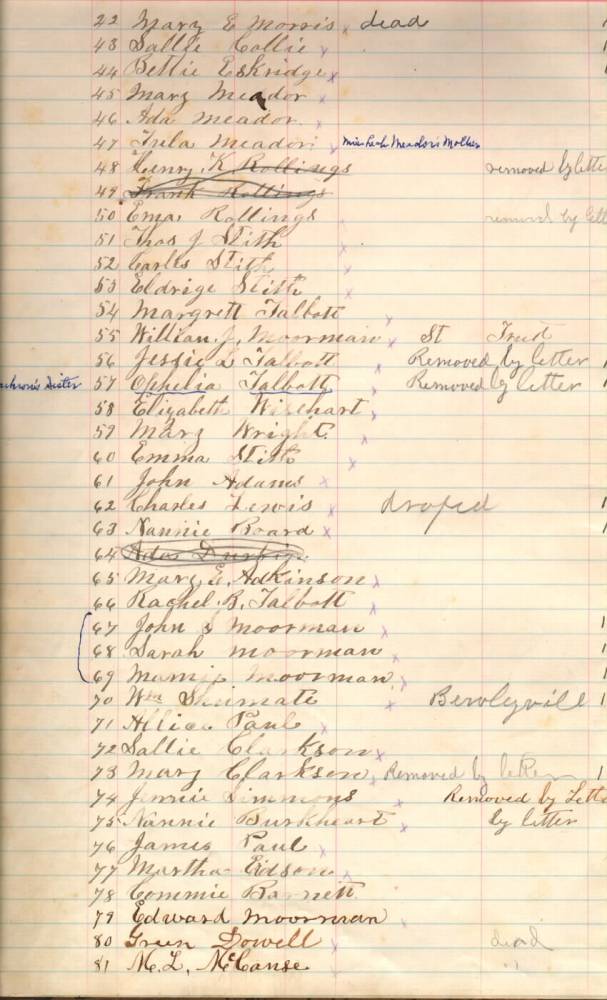 22 Mary E Morris x dead
43 Sallie Collie x
44 Bettie Eskridge x
45 Mary Meador x
46 Ada Meador x
47 Meador Meador's Mother
48 Henry K Rollings removed by lette
49 Frank Rollings
50 Ema Rollings removed by lett
51 Thos J Stith
52 Carles Stith x
53 Eldrige Stith x
54 Margrett Talbott x
55 William J. Moorman x St
56 Jessie L Talbott Removed by letter 1
57 Ophelia Talbott Removed by letter 1
Sister
58 Elizabeth Wisehart x
59 Mary Wright x
60 Emma Stith x
61 John Adams x
62 Charles Lewis x droped 1
63 Nannie Board x 1
64
65 Mary E. Adkinson x
66 Rachel. B. Talbott x
67 John S Moorman x 1
68 Sarah Moorman x 1
69 Mamie Moorman x 1
70 Wm Shumate x Bewleyvill 1
71 Allice Paul x
72 Sallie Clarkson x
73 Mary Clarkson x Removed by letter 1
74 Jennie Simmons x Removed by Lette
75 Nannie Burkheart x by letter
76 James Paul x
77 Martha Eidson x
78 Commie Barnett
79 Edward Moorman
80 Green Dowell x dead
81 M. L. McCanse x "